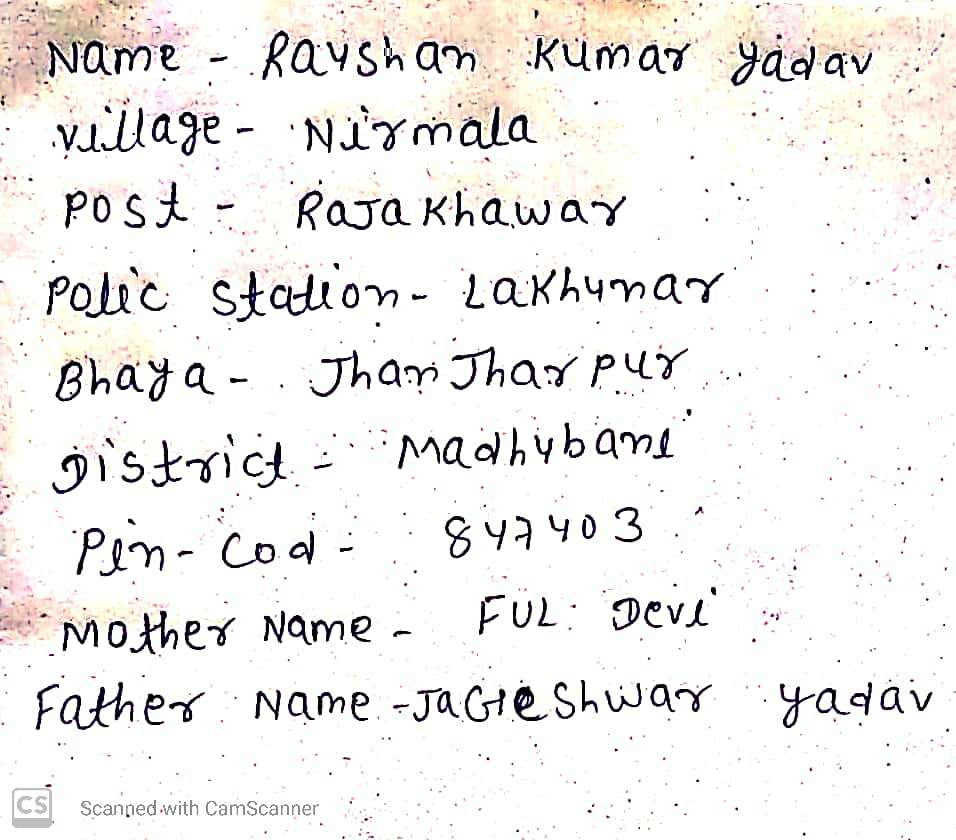 Name - Raushan Kumar yadav
village - Nirmala
Post - RaJa Khawar
Polic Station - Lakhunar
Bhaya - Jhan Jhar pur
District - Madhubani
Pin - Cod - 847403
Mother Name - FUL Devi
Father Name - JaGeShwar yadav
CS Scanned with CamScanner